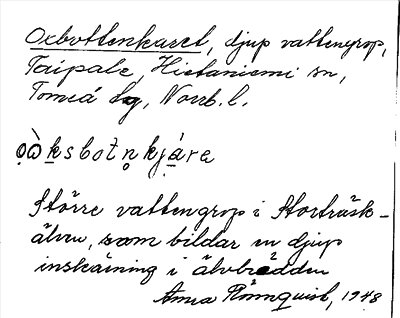 Oxbottenkaret, djup vattengrop,
Taipale, Hietaniemi sn,
Torneå lg, Norrb. l.
ọ̀ɷ̀ḳsbotn̥kjạ́re
Större vattengrop i Storträsk-
älven, som bildar en djup
inskärning i älvbrädden
Anna Rönnquist, 1948